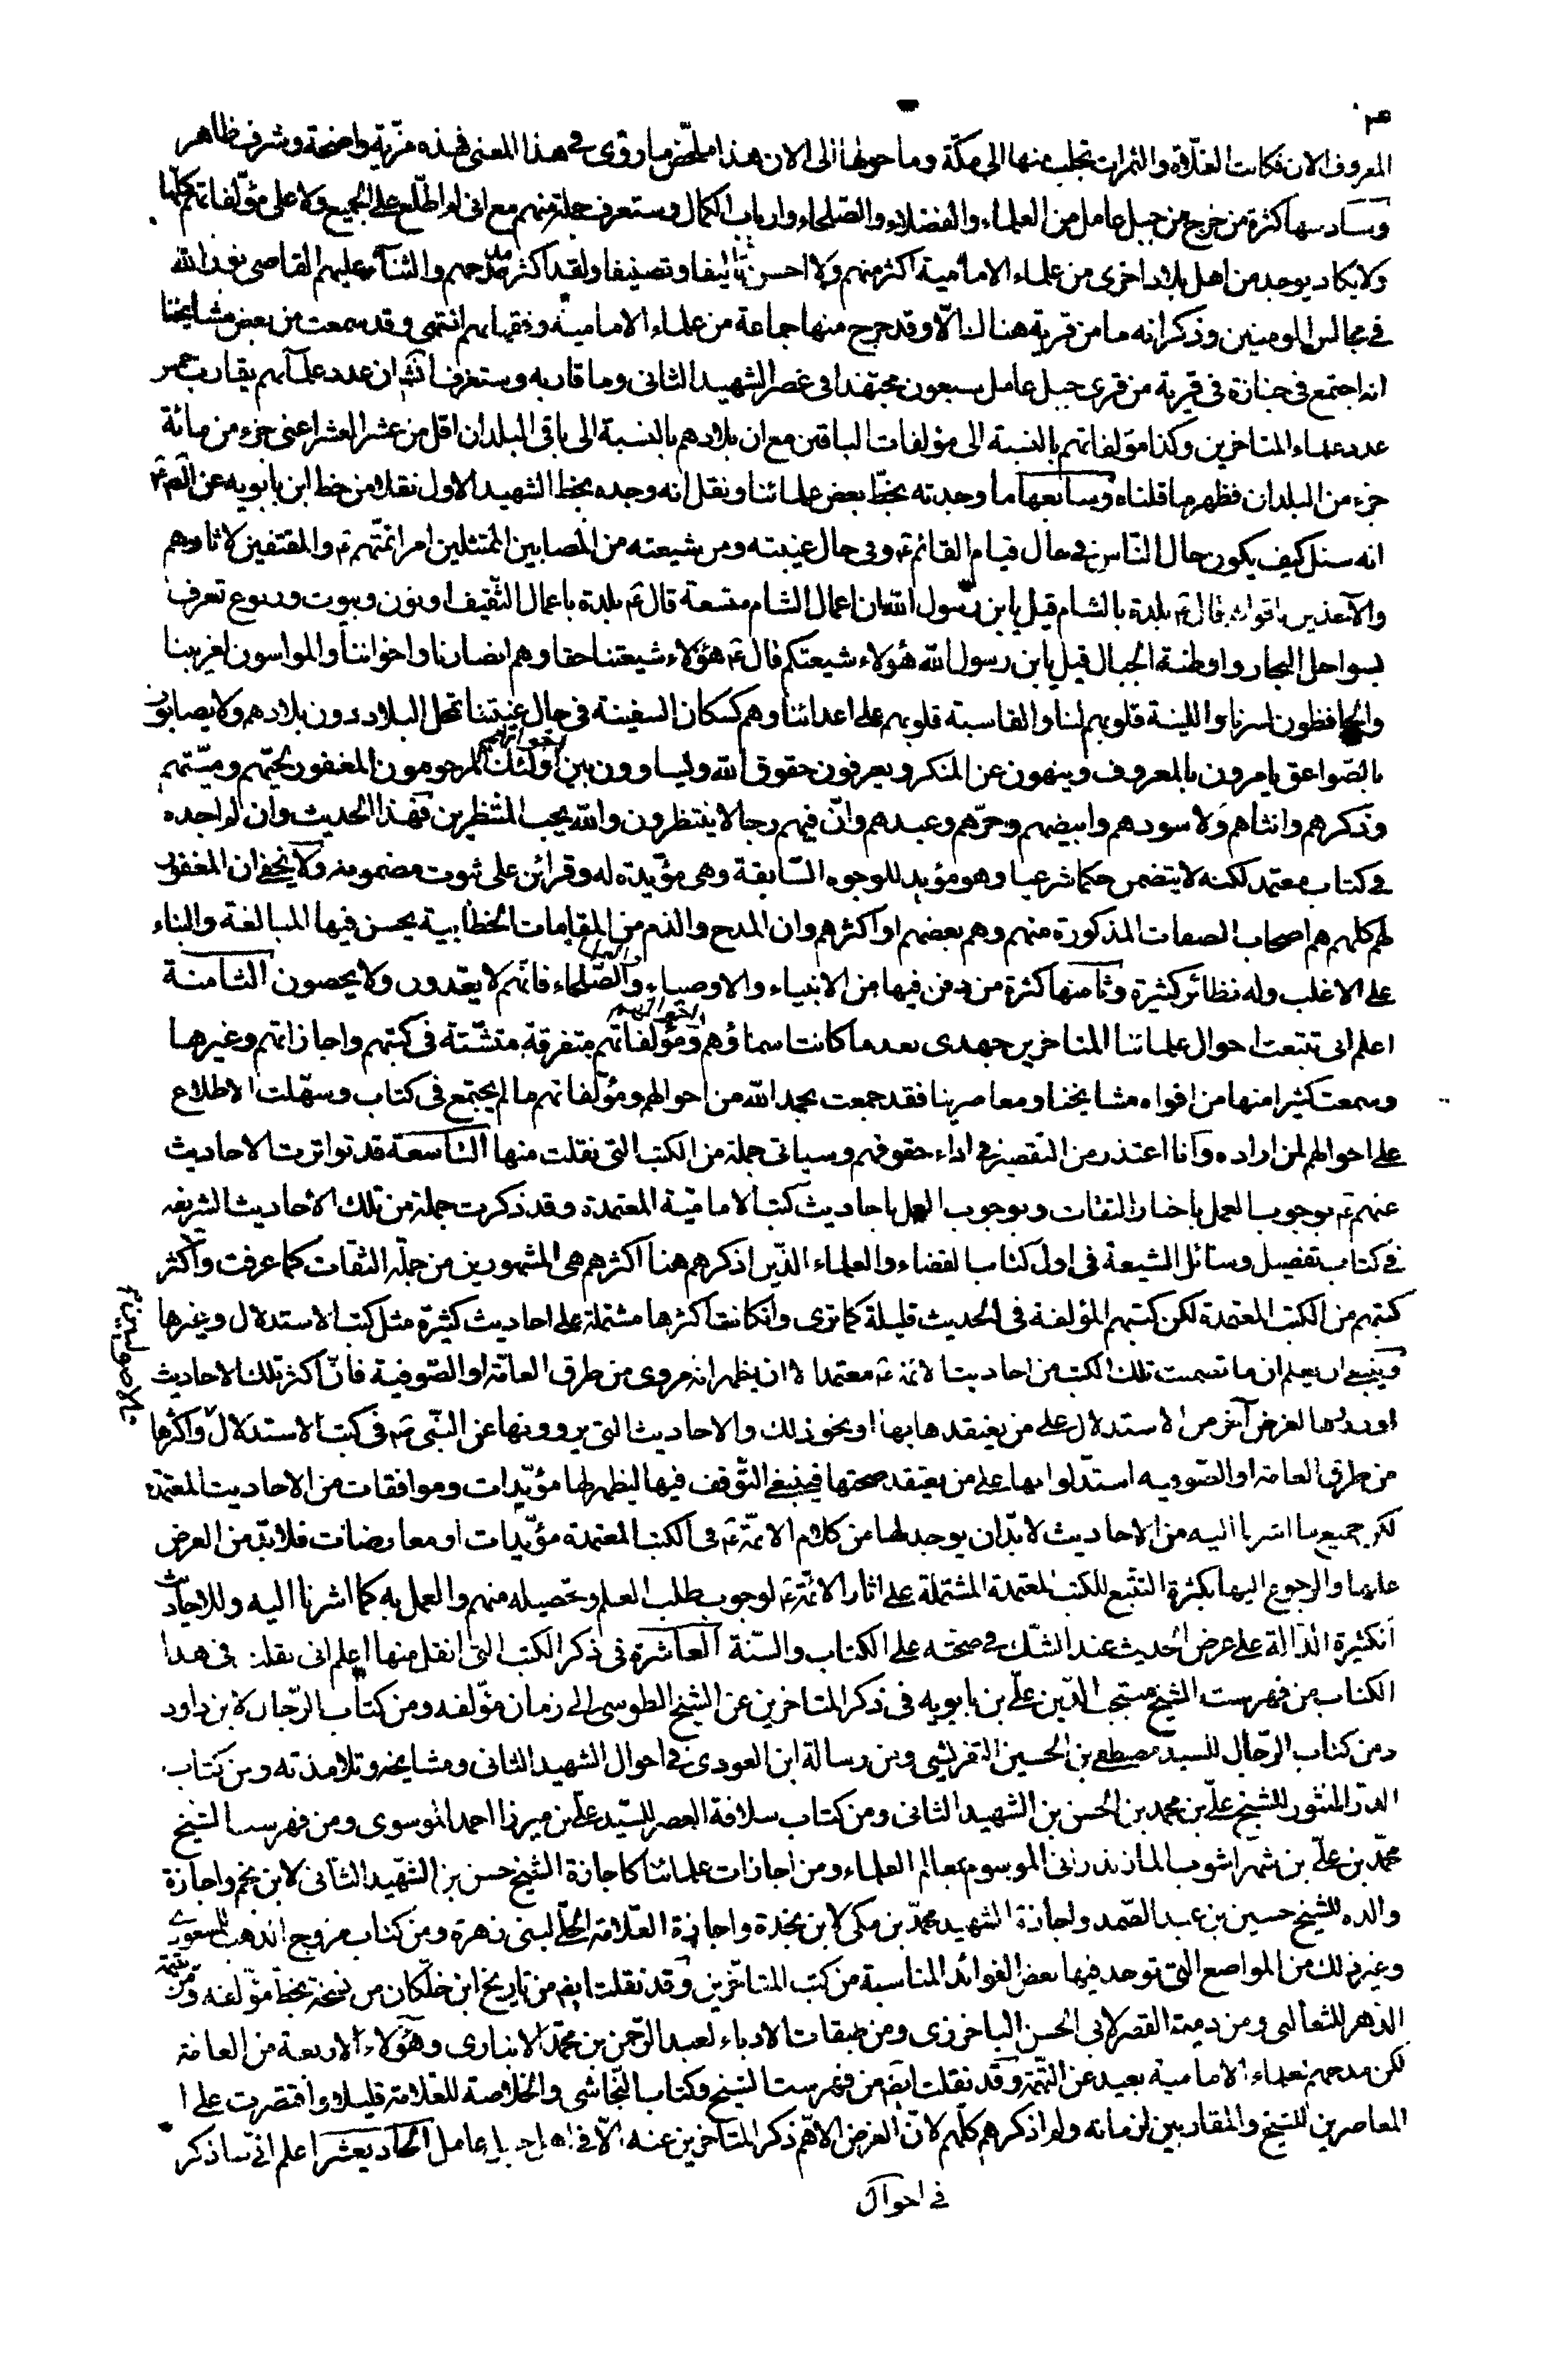 المعروف الان فكانت الغلاة والثمرات تجلب منها الى مكة وما حولها الى الان هذا ملخص ما روى فى هذا المعنى فهذه مزية واضحة وشرف ظاهر
وسادسها كثرة من خرج من جبل عامل من العلماء والفضلاء والصلحاء وارباب الكمال وستعرف جملة منهم مع انى لم اطلع على الجميع ولا على مؤلفاتهم كلها
ولا يكاد يوجد من اهل بلاد اخرى من علماء الامامية اكثر منهم ولا احسن تاليفا وتصنيفا ولقد اكثر مدحهم والثناء عليهم القاضى نور الله
فى مجالس المومنين وذكر انه ما من قرية هناك الا وقد خرج منها جماعة من علماء الامامية وفقهائهم انتهى وقد سمعت من بعض مشايخنا
انه اجتمع فى جنازة فى قرية من قرى جبل عامل سبعون مجتهدا فى عصر الشهيد الثانى وما قاربه وستعرف انش ان عدد علمائهم يقارب خمس
عدد علماء المتاخرين وكذا مؤلفاتهم بالنسبة الى مؤلفات الباقين مع ان بلادهم بالنسبة الى باقى البلدان اقل من عشر العشر اعنى جزء من مائة
جزء من البلدان فظهر ما قلناه وسابعها ما وجدته بخط بعض علمائنا ونقل انه وجده بخط الشهيد الاول نقلا من خط ابن بابويه عن الصم ع
انه سئل كيف يكون حال الناس فى حال قيام القائم ع وفى حال غيبته ومن شيعته من المصابين الممتثلين امر ائمتهم ع والمقتفين لاثارهم
والآخذين باقوالهم فقال ع بلدة بالشام قيل يابن رسول الله ان اعمال الشام متسعة قال ع بلدة باعمال الشقيف اونون وبيوت وربوع تعرف
بسواحل البحار واوطئة الجبال قيل يابن رسول الله هؤلاء شيعتكم قال ع هؤلاء شيعتنا حقا وهم انصارنا واخواننا والمواسون لغريبنا
والحافظون لسرنا واللينة قلوبهم لنا والقاسية قلوبهم على اعدائنا وهم كسكان السفينة فى حال غيبتنا تمحل البلاد دون بلادهم ولا يصابون
بالصواعق يامرون بالمعروف وينهون عن المنكر ويعرفون حقوق الله ويساوون بين اخوانهم اولئك المرحومون المغفور لحيهم وميتهم
وذكرهم وانثاهم ولاسودهم وابيضهم وحرهم وعبدهم وان فيهم رجالا ينتظرون والله يحب المنتظرين فهذا الحديث وان لم اجده
فى كتاب معتمد لكنه لا يتضمن حكما شرعيا وهو مؤيد للوجوه السابقة وهى مؤيدة له وقرائن على ثبوت مضمونه ولا يخفى ان المغفور
لهم كلهم هم اصحاب الصفات المذكورة منهم وهم بعضهم او اكثرهم وان المدح والذم من المقامات الخطابية يحسن فيها المبالغة والبناء
على الاغلب وله نظائر كثيرة وثامنها كثرة من دفن فيها من الانبياء والاوصياء والصلحاء فانهم لا يعدون ولا يحصون الثامنة
اعلم انى تتبعت احوال علمائنا المتاخرين جهدى بعدما كانت اسماؤهم واحوالهم ومؤلفاتهم متفرقة متشتتة فى كتبهم واجازاتهم وغيرها
وسمعت كثيرا منها من افواه مشايخنا ومعاصرينا فقد جمعت بحمد الله من احوالهم ومؤلفاتهم ما لم يجتمع فى كتاب وسهلت الاطلاع
على احوالهم لمن اراده وانا اعتذر من التقصير فى اداء حقوقهم وسياتى جملة من الكتب التى نقلت منها التاسعة قد تواترت الاحاديث
عنهم ع بوجوب العمل باخبار الثقات وبوجوب العمل باحاديث كتب الامامية المعتمدة وقد ذكرت جملة من تلك الاحاديث الشريفه
فى كتاب تفصيل وسائل الشيعة فى اول كتاب القضاء والعلماء الذين اذكرهم هنا اكثرهم هى المشهورين من جملة الثقات كما عرفت واكثر
كتبهم من الكتب المعتمدة لكن كتبهم المؤلفة فى الحديث قليلة كما ترى وان كانت اكثرها مشتملة على احاديث كثيرة مثل كتب الاستدلال وغيرها
وينبغى ان يعلم ان ما تضمنت تلك الكتب من احاديث الائمة ع معتمد الا ان يظهر انه مروى من طرق العامة او الصوفية فان اكثر تلك الاحاديث
اوردوها لغرض آخر من الاستدلال على من يعتقدها بها او نحو ذلك والاحاديث التى يروونها عن النبى ص فى كتب الاستدلال واكثرها
من طرق العامة او الصوفيه استدلوا بها على من يعتقد صحتها فينبغى التوقف فيها ليظهر لها مؤيدات وموافقات من الاحاديث المعتمدة
لكن جميع ما اشرنا اليه من الاحاديث لا بد ان يوجد لها من كلام الائمة ع فى الكتب المعتمدة مؤيدات او معارضات فلا بد من العرض
عليها والرجوع اليها بكثرة التتبع للكتب المعتمدة المشتملة على اثار الائمة ع لوجوب طلب العلم وتحصيله منهم والعمل به كما اشرنا اليه وللاحاديث
الكثيرة الدالة على عرض الحديث عند الشك فى صحته على الكتاب والسنة العاشرة فى ذكر الكتب التى انقل منها اعلم انى نقلت فى هذا
الكتاب من فهرست الشيخ منتجب الدين على بن بابويه فى ذكر المتاخرين عن الشيخ الطوسى الى زمان مؤلفه ومن كتاب الرجال لابن داود
ومن كتاب الرجال للسيد مصطفى بن الحسين التفريشى ومن رسالة ابن العودى فى احوال الشهيد الثانى ومشايخه وتلامذته ومن كتاب
الدر المنثور للشيخ على بن محمد بن الحسن بن الشهيد الثانى ومن كتاب سلافة العصر للسيد على بن ميرزا احمد الموسوى ومن فهرست الشيخ
محمد بن على بن شهراشوب المازندرانى الموسوم بمعالم العلماء ومن اجازات علمائنا كاجازة الشيخ حسن بن الشهيد الثانى لابن نجم واجازة
والده للشيخ حسين بن عبد الصمد واجازة الشهيد محمد بن مكى لابن نجدة واجازة العلامة الحلى لبنى زهرة ومن كتاب مروج الذهب للمسعودى
وغير ذلك من المواضع التى توجد فيها بعض الفوائد المناسبة من كتب المتاخرين وقد نقلت ايضم من تاريخ ابن خلكان من نسخة بخط مؤلفه ومن يتيمة
الدهر للثعالبى ومن دمية القصر لابى الحسن الباخرزى ومن طبقات الادباء لعبد الرحمن بن محمد الانبارى وهؤلاء الاربعة من العامة
لكن مدحهم لعلماء الامامية بعيد عن التهمة وقد نقلت ايضم من فهرست الشيخ وكتاب النجاشى والخلاصة للعلامة قليلا واقتصرت على ا
المعاصرين للشيخ والمقاربين لزمانه ولم اذكرهم كلهم لان الغرض الاهم ذكر المتاخرين عنه الا فى اهل جبل عامل الحادية عشر اعلم انى ساذكر
فى احوال